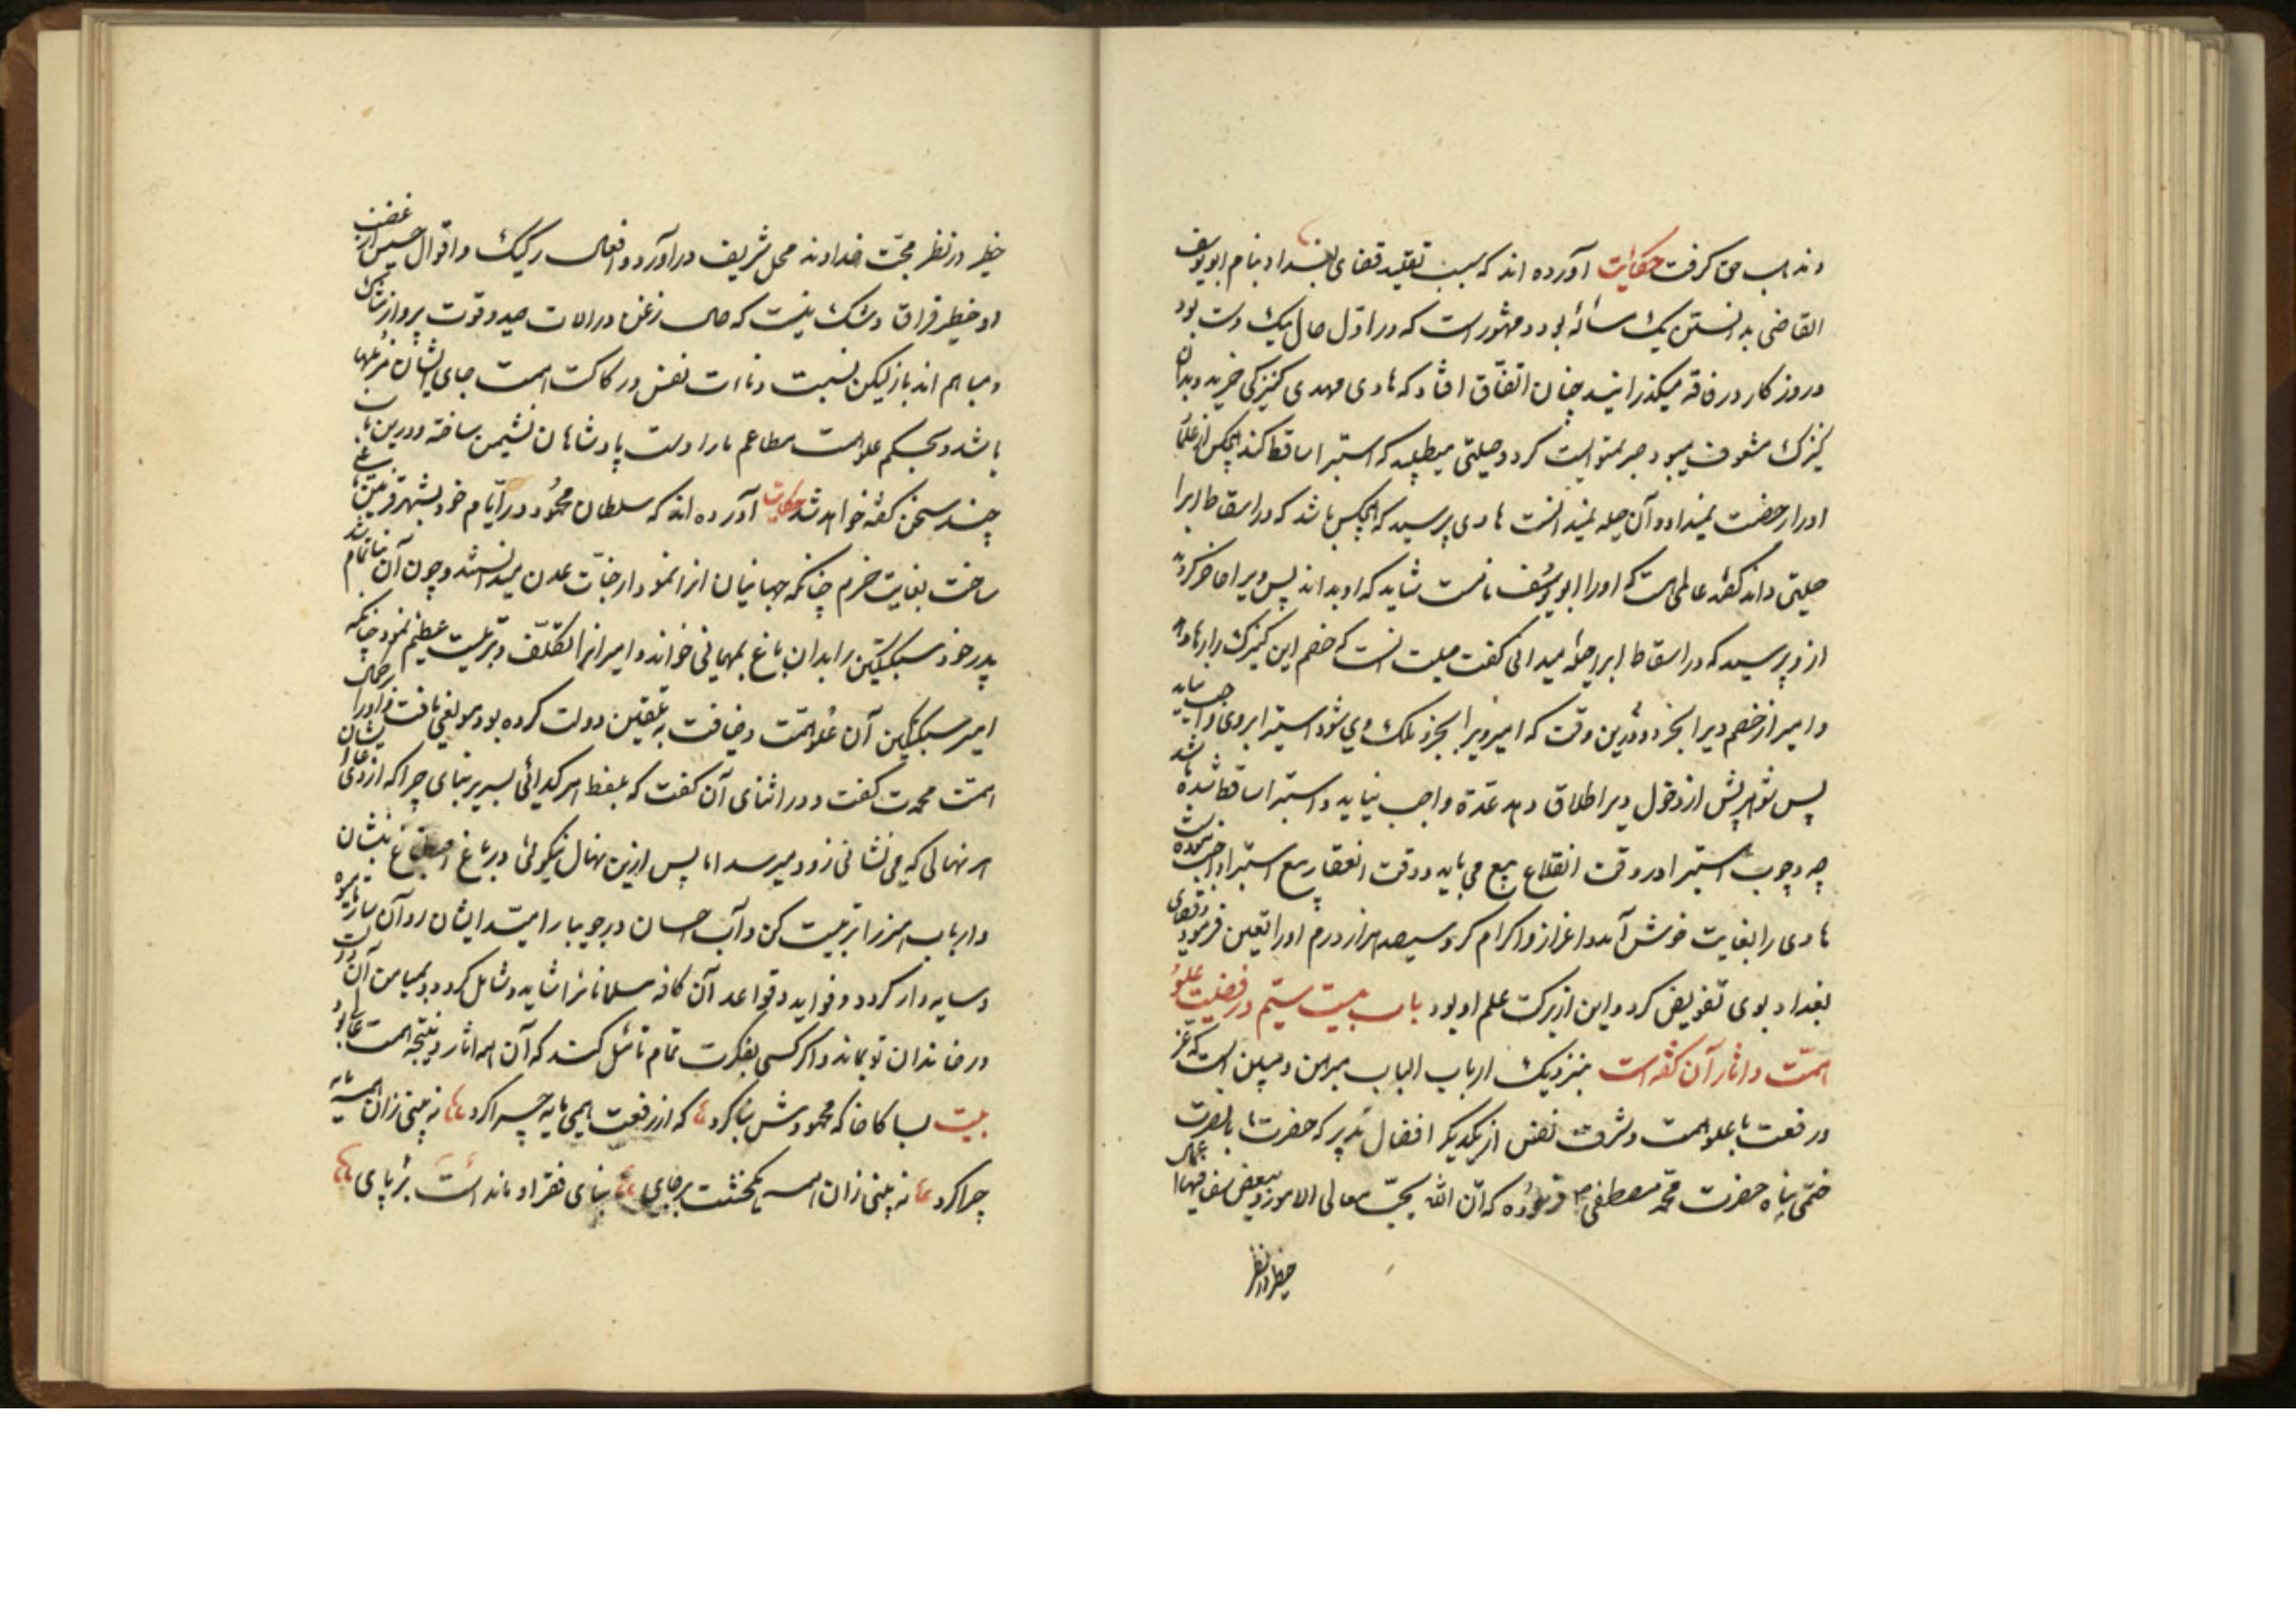 و مذاهب حق گرفت حکایت آورده اند که سبب تقلید قضای بغداد بنام ابو یوسف
القاضی بدانستن یک مسأله بود و مشهور است که در اول حال تنک دست بود
و روزکار در فاقه میکذرانید چنان اتفاق افتاد که هادی مهدی کنیزکی خرید و بدان
کنیزک مشعوف میبود صبر نمیتوانست کرد و حیلتی میطلبید که استبرا ساقط کند هیچکس از علما
او را رخصت نمیداد و آن حیله نمیدانست هادی پرسید که هیچکس باشد که در اسقاط ابرا
حیلتی داند کفتند عالمی است که او را ابو یوسف نامست شاید که او بداند پس ویرا حاضر کردند
از و پرسید که در اسقاط ابرا حیله میدانی کفت حیلت آنست که خصم این کنیزک را رها دهد
و امیر از خصم ویرا بخرد و درین وقت که امیر ویرا بخرد ملک وی شود استبرا بر وی واجب نیاید
پس شوهرش پیش از دخول ویرا طلاق دهد عدة واجب نیاید و استبرا ساقط شده باشد
چه وجوب استبرا در وقت انقلاع بیع می باید و وقت انعقاد بیع استبرا واجب نشده است
هادی را بغایت خوش آمد و اعزاز و اکرام کرد و سیصد هزار درم او را تعین فرمود و قضای
بغداد بوی تفویض کرد و این از برکت علم او بود باب بیست سیّم در فضلیت علوّ
همّت و آثار آن گفته است بنزدیک ارباب الباب مبرهن و مبین است که عز
و رفعت با علو همت و شرف نفس از یکدیکر افضال پذیر که حضرت با نصرت
ختمی پناه حضرت محمّد مصطفی ص فرموده که انّ اللّه یحبّ معالی الامور و یبغض سفسافها اعمال
خطر در نظر
خطیر در نظر محبّت خداوند محل شریف در آورد و افعال رکیک و اقوال خسیس از غضب
او خطیر فراق و شک نیست که حال زغن در الات صید و قوت پرواز مشارک
و مساهم اند باز لیکن نسبت دناءت نفس و رکاکت همت جای ایشان مزبلها
باشد و بحکم علو همت مطاعم باز را دست پادشاهان نشیمن ساخته و درین باب
چند سخن کفته خواهد شد حکایت آورده اند که سلطان محمُود در ایّام خود بشهر قزنین باغی
ساخت بغایت خرم چنانکه جهانیان انرا نمودار جنّات عدن میدانستند و چون آن بنا تمام شد
پدر خود سبکتکین را بدان باغ بمهمانی خواند و امیر انرا تکلّف و ترتیبت عظیم نمود چنانکه
امیر سبکتکین آن عُلو همّت و ضیافت به تلقین دولت کرده بود موافق یافت و او را بر جمال
همّت محمدت کفت و در اثنای آن کفت که
هر نهالی که می نشانی زود میرسد اما پس ازین نهال نیکوئی در باغ اصطناع بنشان
و ارباب هنر را تربیت کن و آب احسان در جویبار امیّد ایشان روآن ساز تا میوه
و سایه دار کردد و فواید و قواعد آن کافه مسلمانانرا شاید و شامل کردد و بمیامن آن دولت
در خاندان تو بماند و اکر کسی بفکرت تمام تأمّل کند که آن همه اثار و نتیجه همت عالی بود
بیت بسا کاخا که محمودش بنا کرد که از رفعت همی با مه چرا کرد نه بینی زان همه
چرا کرد نه بینی زان همه یک خشت بر جای بنای فقر او مانده است بر پای